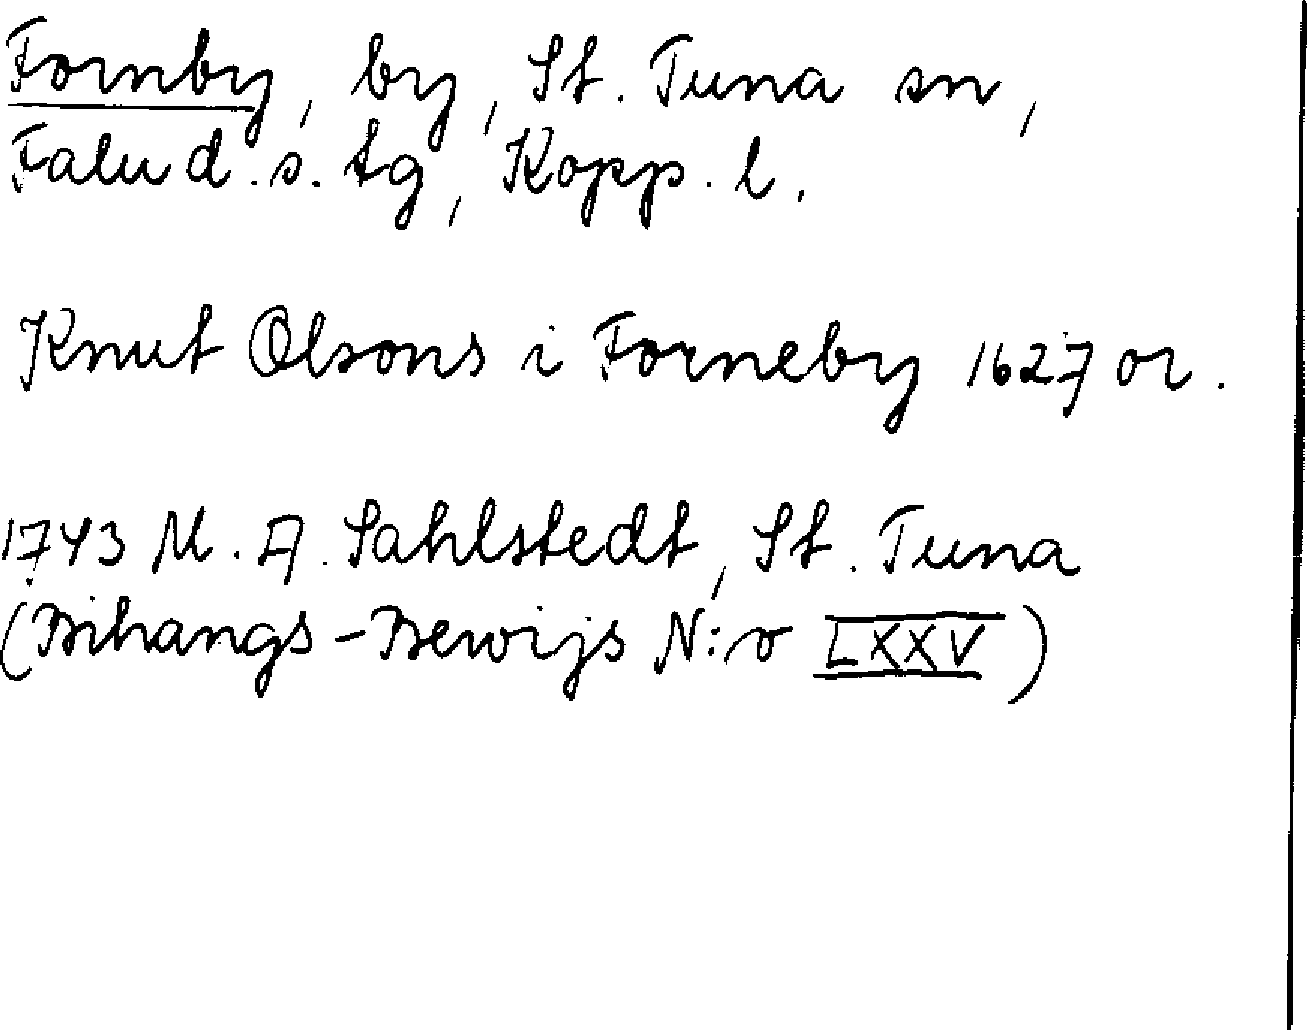 Fornby, by, St. Tuna sn,
Falu d. s. tg, Kopp. l.
Knut Olsons i Forneby 1627 or.
1743 M. A. Sahlstedt, St. Tuna
(Bihangs-Bewijs N:o LXXV)